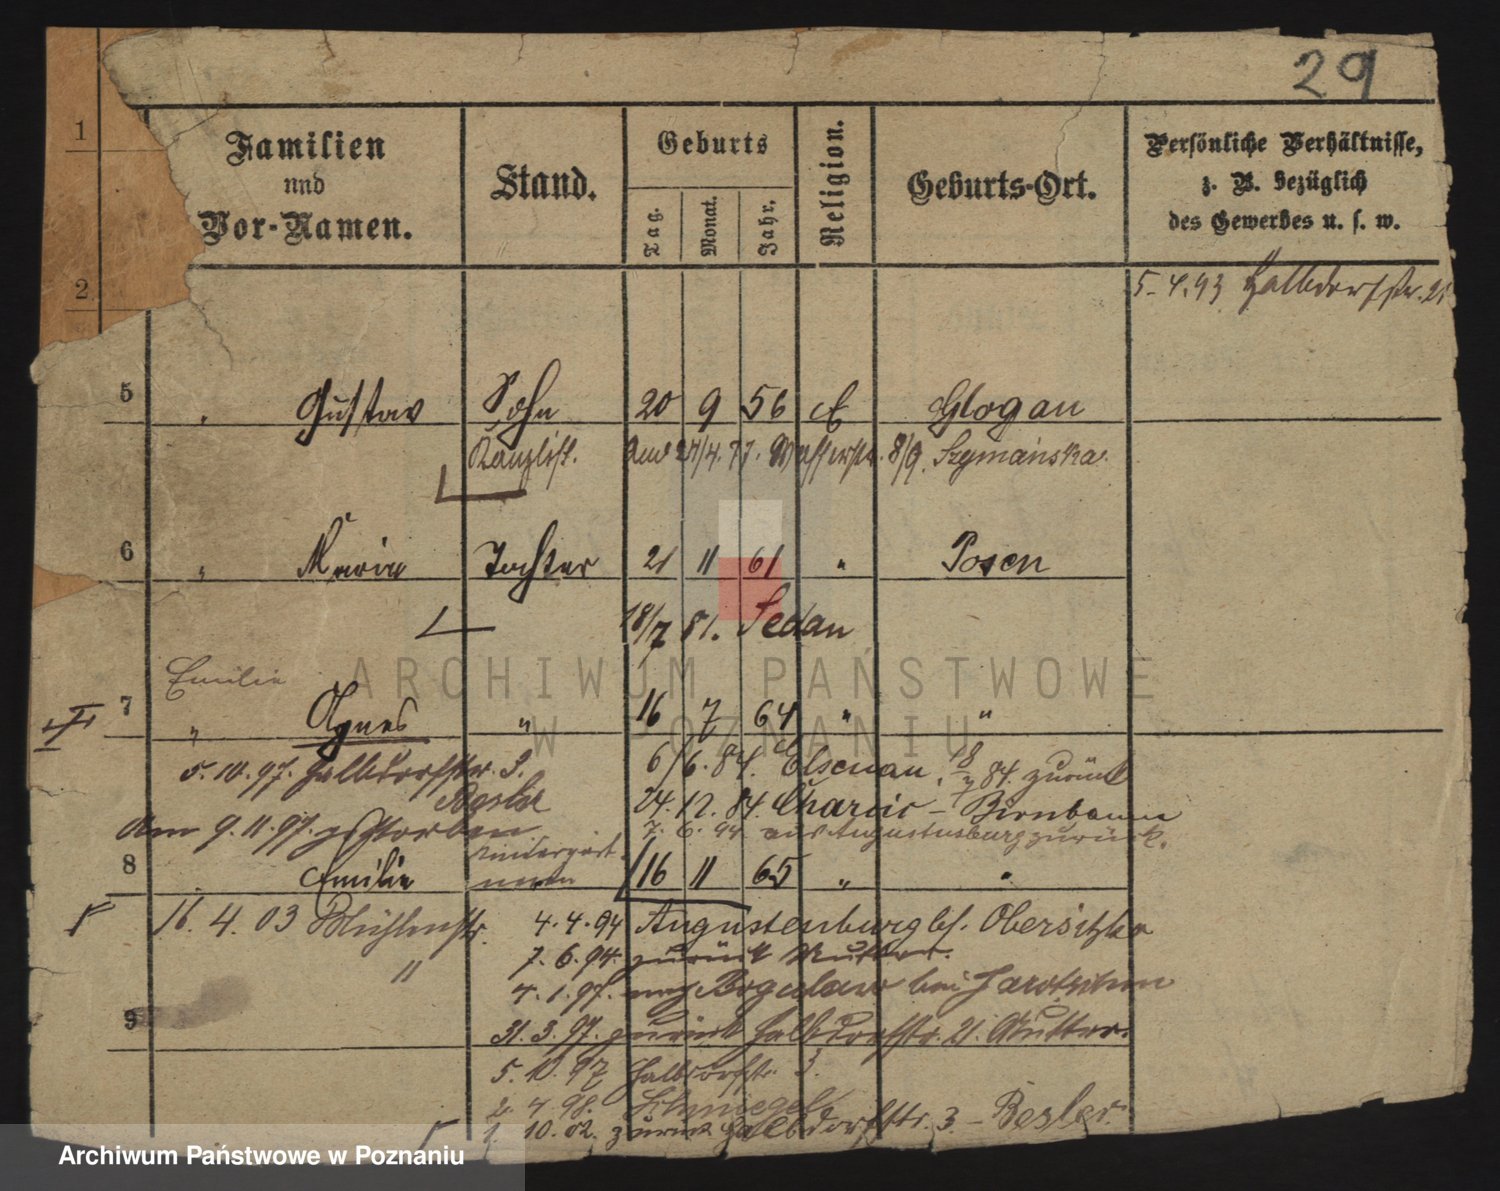 29
1
Familien
und
Vor-Namen.
Stand.
Geburts
Tag.
Monat.
Jahr.
Religion.
Geburts-Ort.
Persönliche Verhältnisse,
z. B. bezüglich
des Gewerbes u. s. w.
2
5. 4. 93 Halbdorfstr. 21
5 " Gustav Sohn 20 9 56 E Glogau
Kanzlist. 24/4. 77. Wasserstr. 8/9. Szymańska
6 " Maria Tochter 21 11 61 " Posen
18/7 81. Sedan
Emilie
7 " Agnes " 16 7 64 " "
5. 10. 97. Halbdorfstr. 3. 6/6. 84. Elsenau, 8/7 84. zurück
Besler 24. 12. 84. Charcic – Birnbaum
Am 9. 11. 97. gestorben 7. 6. 94 aus Augustusburg zurück.
Kindergärt-
8 Emilie nerin 16 11 65 " "
16. 4. 03 Mühlenstr. 4. 4. 94 Augustenburg bei Obersitzko
" 7. 6. 94. zurück Mutter.
4. 1. 97. nach Bogulaw bei Jarotschin
9 31. 3. 97. zurück Halbdorfstr. 21. Mutter.
5. 10. 97 Halbdorfstr. 3.
2. 4. 98. Schmiegel
1. 10. 02. zurück Halbdorfstr. 3 – Besler.
ARCHIWUM PAŃSTWOWE
W POZNANIU
Archiwum Państwowe w Poznaniu